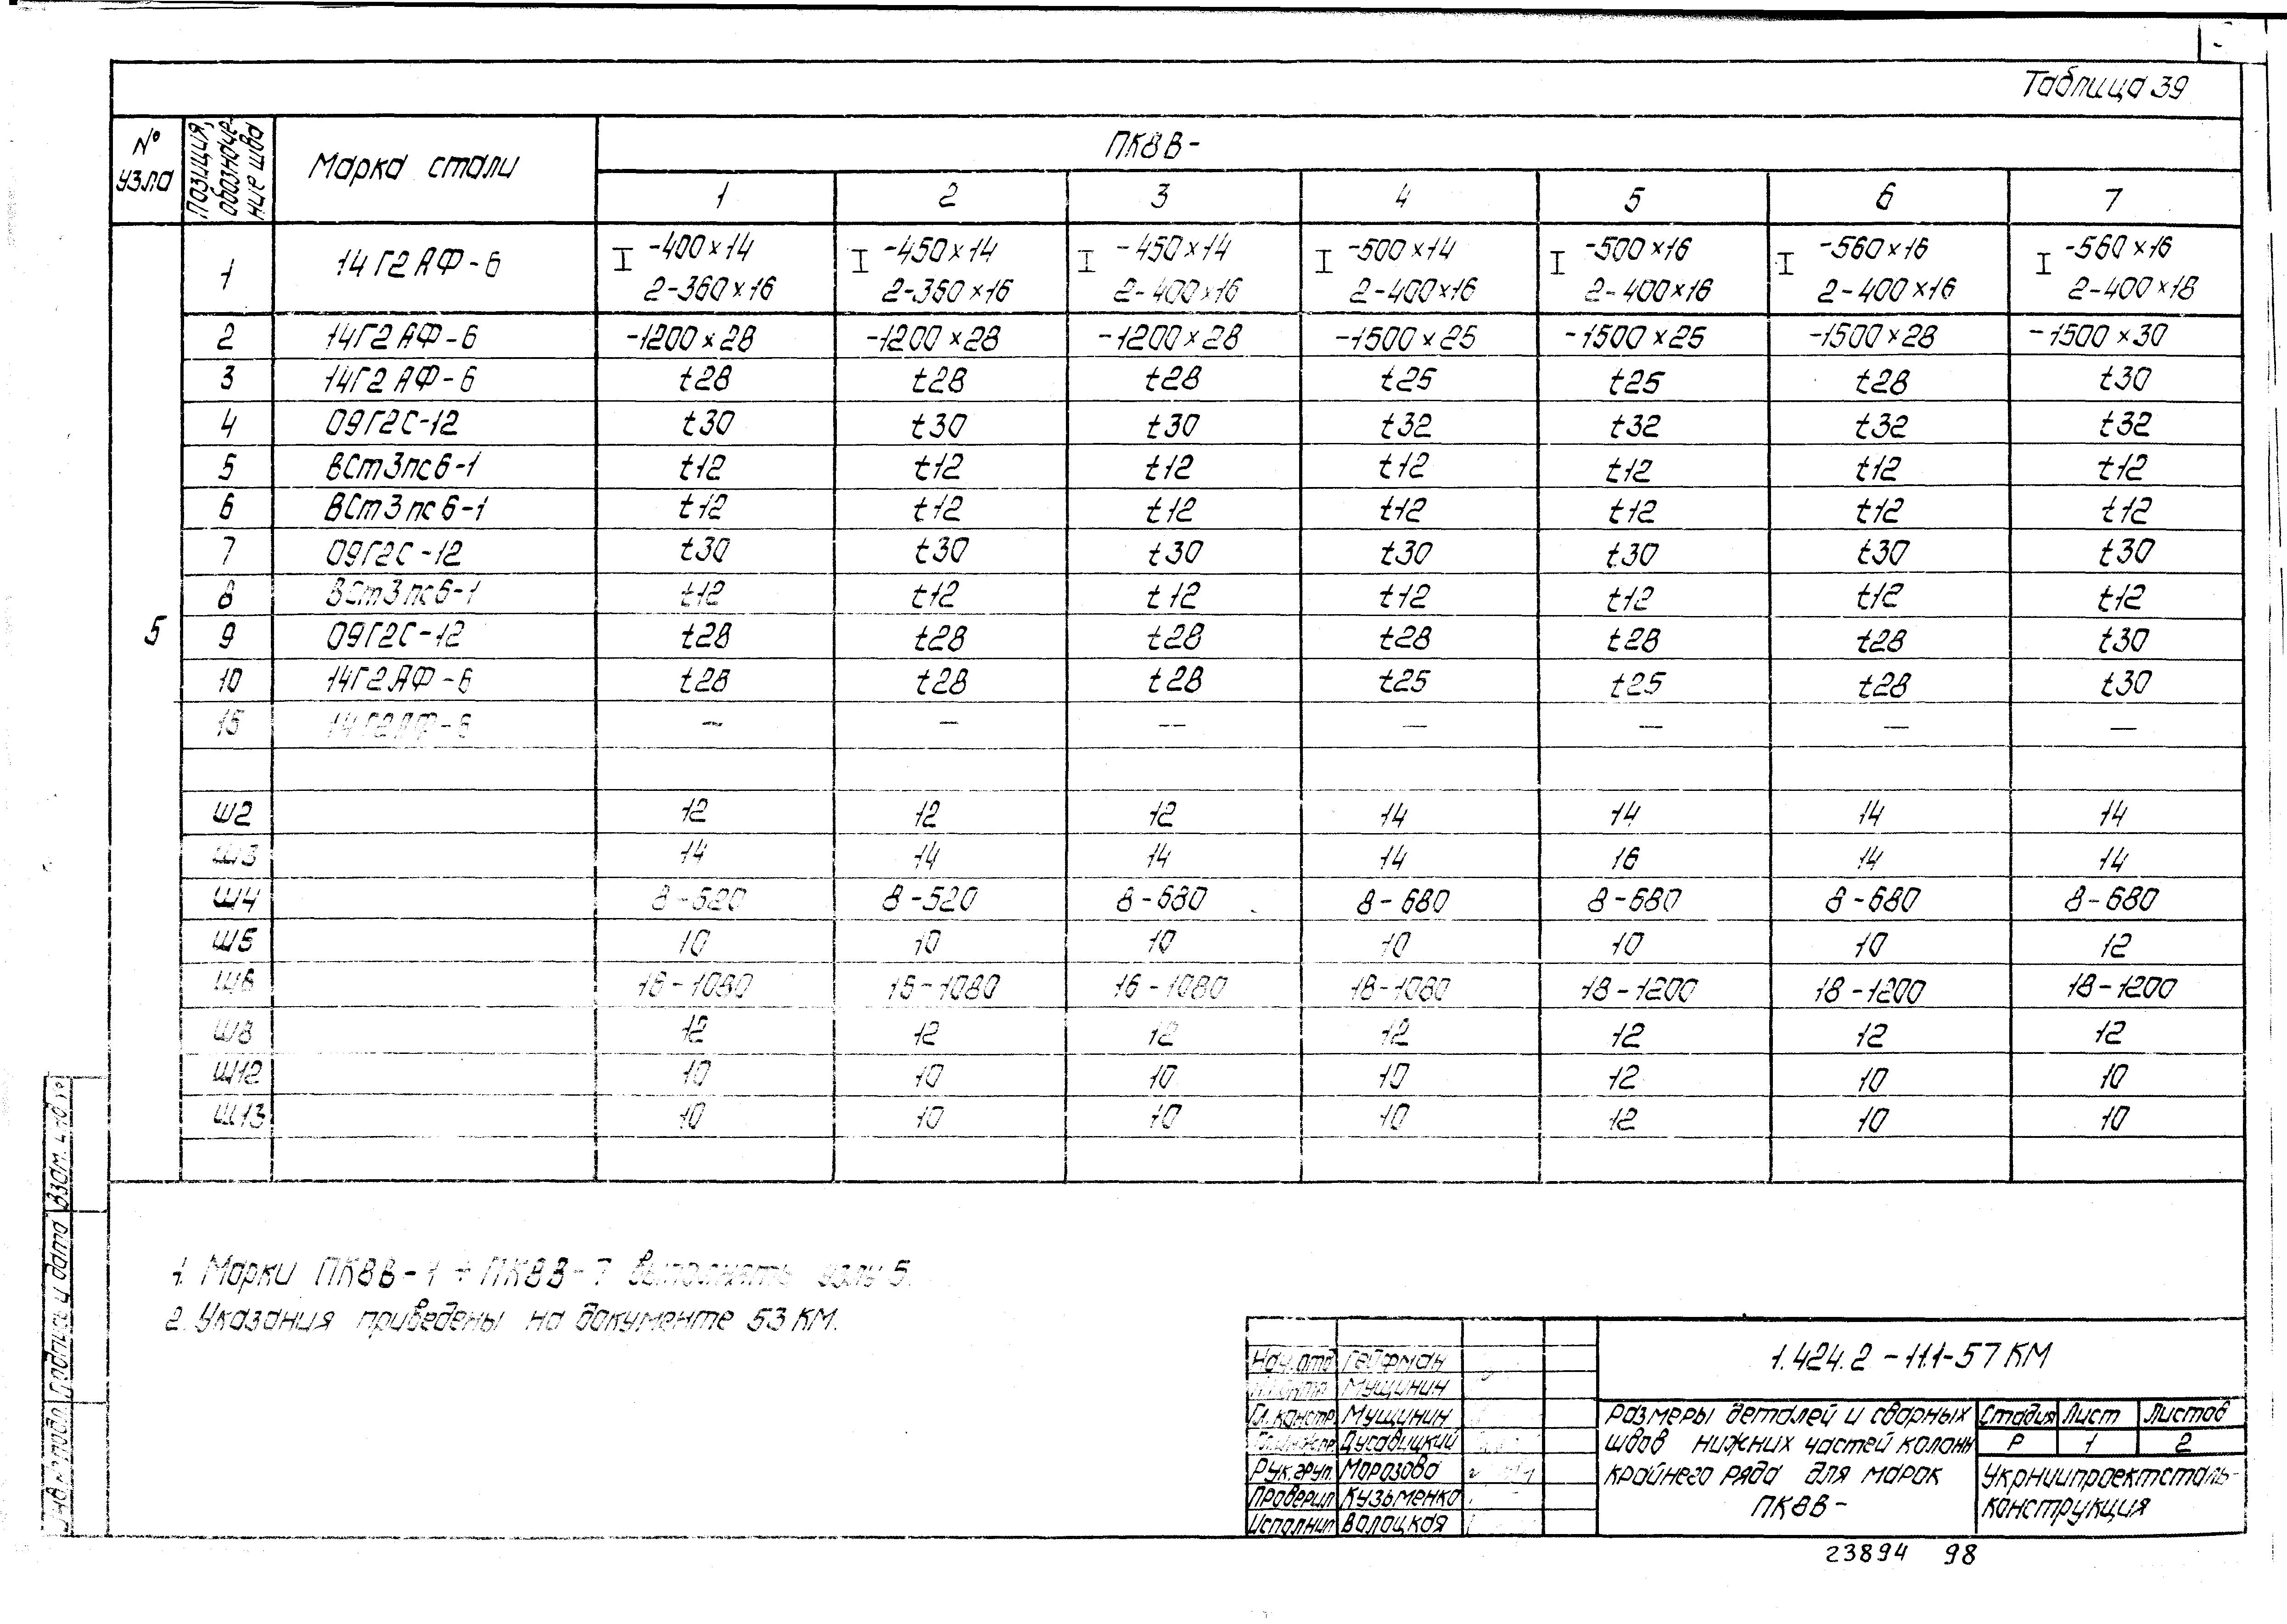 Таблица 39
№ узла | Позиция, обозначение шва | Марка стали | ПК8В-
1 | 2 | 3 | 4 | 5 | 6 | 7
5
1 | 14Г2АФ-6 | I -400×14 2-360×16 | I -450×14 2-360×16 | I -450×14 2-400×16 | I -500×14 2-400×16 | I -500×16 2-400×16 | I -560×16 2-400×16 | I -560×16 2-400×18
2 | 14Г2АФ-6 | -1200×28 | -1200×28 | -1200×28 | -1500×25 | -1500×25 | -1500×28 | -1500×30
3 | 14Г2АФ-6 | t28 | t28 | t28 | t25 | t25 | t28 | t30
4 | 09Г2С-12 | t30 | t30 | t30 | t32 | t32 | t32 | t32
5 | ВСт3пс6-1 | t12 | t12 | t12 | t12 | t12 | t12 | t12
6 | ВСт3пс6-1 | t12 | t12 | t12 | t12 | t12 | t12 | t12
7 | 09Г2С-12 | t30 | t30 | t30 | t30 | t30 | t30 | t30
8 | ВСт3пс6-1 | t12 | t12 | t12 | t12 | t12 | t12 | t12
9 | 09Г2С-12 | t28 | t28 | t28 | t28 | t28 | t28 | t30
10 | 14Г2АФ-6 | t28 | t28 | t28 | t25 | t25 | t28 | t30
15 | 14Г2АФ-6 | — | — | — | — | — | — | —
Ш2 | 12 | 12 | 12 | 14 | 14 | 14 | 14
Ш3 | 14 | 14 | 14 | 14 | 16 | 14 | 14
Ш4 | 8-520 | 8-520 | 8-680 | 8-680 | 8-680 | 8-680 | 8-680
Ш5 | 10 | 10 | 10 | 10 | 10 | 10 | 12
Ш6 | 18-1080 | 16-1080 | 16-1080 | 18-1080 | 18-1200 | 18-1200 | 18-1200
Ш8 | 12 | 12 | 12 | 12 | 12 | 12 | 12
Ш12 | 10 | 10 | 10 | 10 | 12 | 10 | 10
Ш13 | 10 | 10 | 10 | 10 | 12 | 10 | 10
1. Марки ПК8В-1 ÷ ПК8В-7 выполнять узлу 5.
2. Указания приведены на документе 53 КМ.
Инв. № подл. Подпись и дата Взам. инв. №
Нач. отд. Гейфман
Мущинин
Гл. констр. Мущинин
Гл. инж. пр. Дусавицкий
Рук. груп. Морозова
Проверил Кузьменко
Исполнил Волоцкая
1.424.2-11.1-57 КМ
Размеры деталей и сварных
швов нижних частей колонн
крайнего ряда для марок
ПК8В-
Стадия | Лист | Листов
Р | 1 | 2
Укрниипроектсталь-
конструкция
23894 98